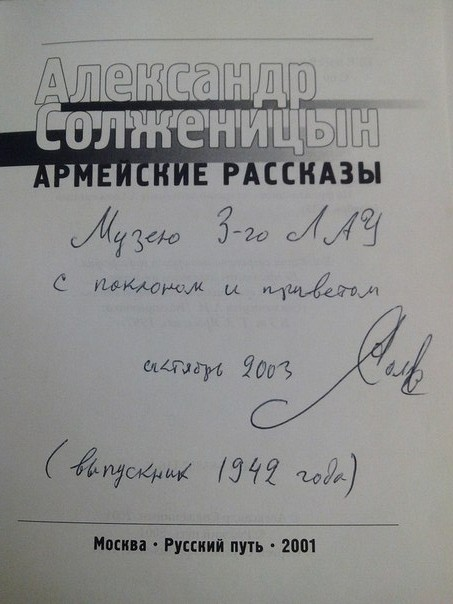 Александр
Солженицын
АРМЕЙСКИЕ РАССКАЗЫ
Музею 3-го ЛАУ
с поклоном и приветом
октябрь 2003
(выпускник 1942 года)
Москва · Русский путь · 2001